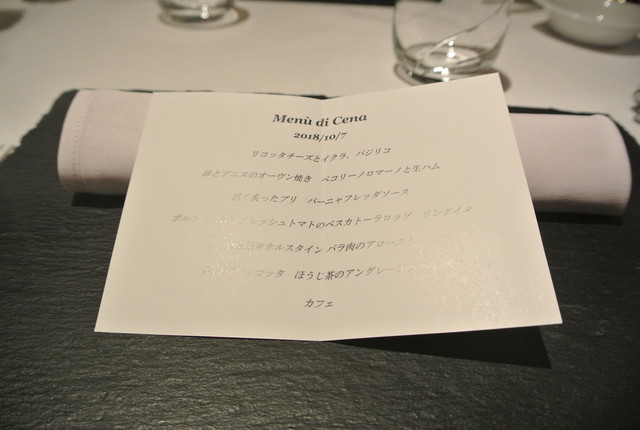 Menù di Cena
2018/10/7
リコッタチーズとイクラ、バジリコ
とアニスのオーヴン焼き ペコリーノロマーノと生ハム
炙ったブリ バーニャフレッダソース
フレッシュトマトのペスカトーラロッソ リングイネ
ホルスタイン バラ肉のアロースト
コッタ ほうじ茶のアングレーズ
カフェ